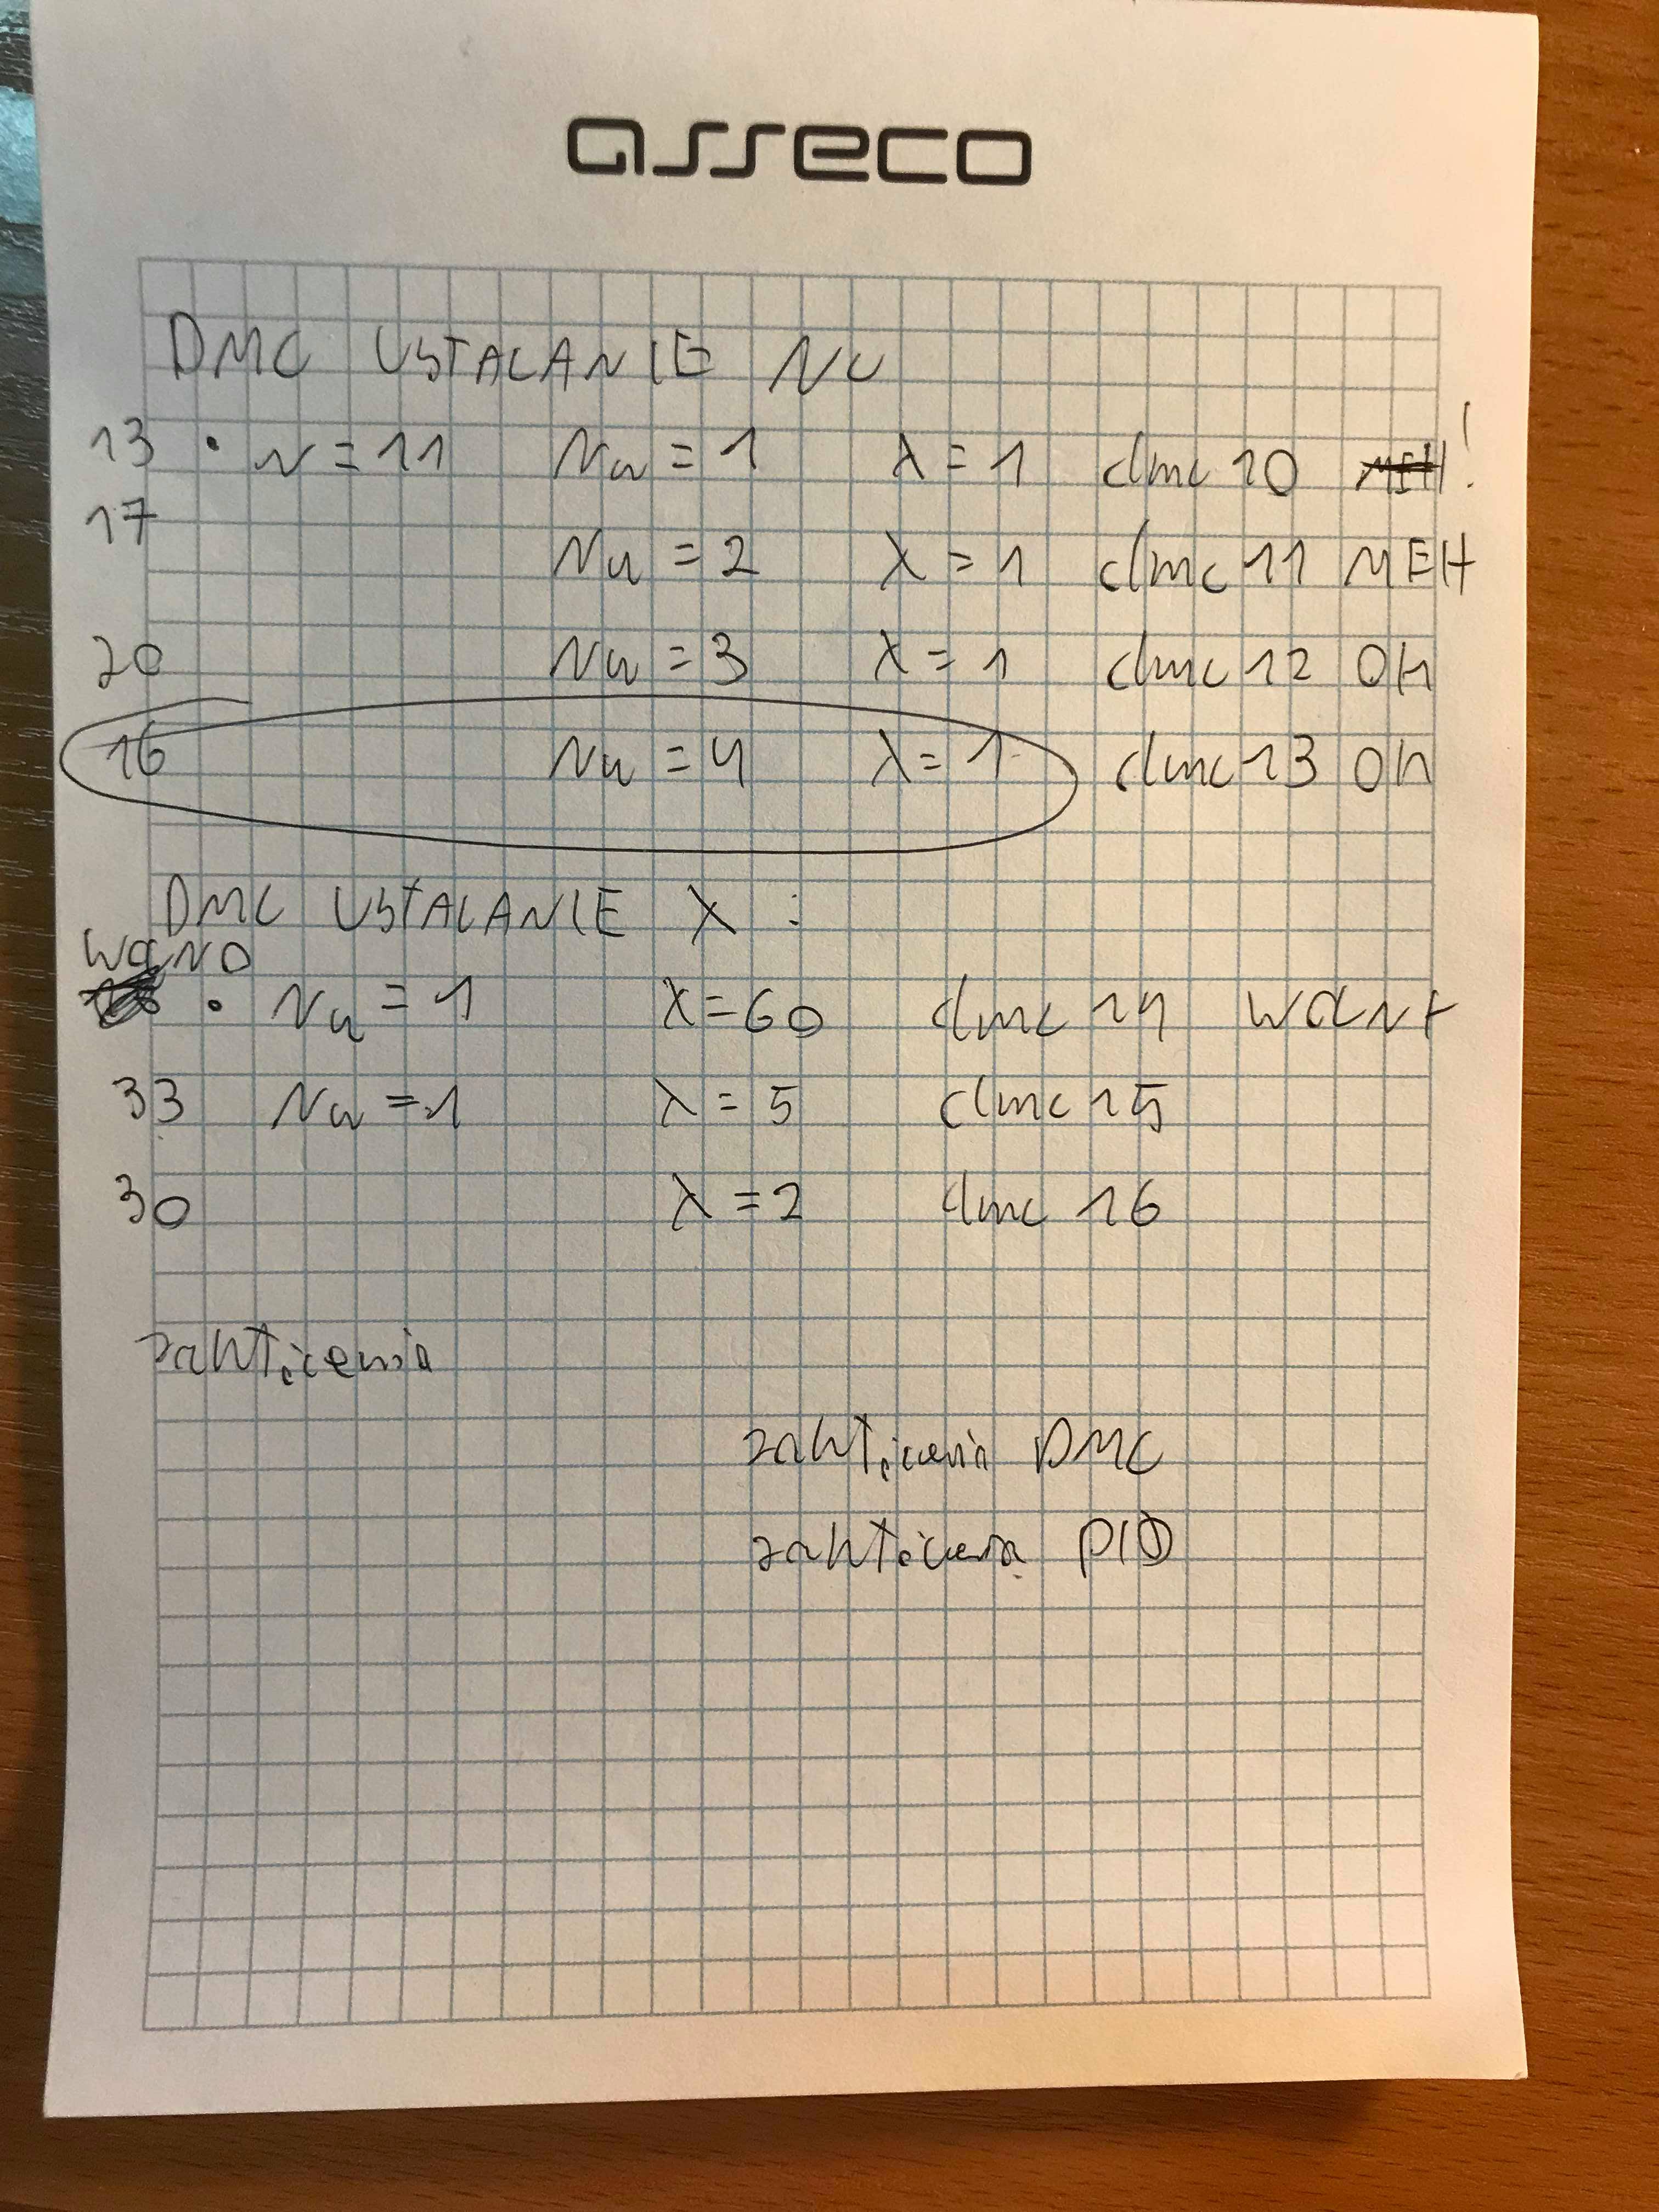 asseco
DMC USTALANIE NU
13 • N = 11 Nu = 1 λ = 1 dmc 10 MEH!
17
Nu = 2 λ = 1 dmc 11 MEH
20 Nu = 3 λ = 1 dmc 12 OK
16 Nu = 4 λ = 1 dmc 13 OK
DMC USTALANIE λ :
• Nu = 1 λ = 60 dmc 14
33 Nu = 1 λ = 5 dmc 15
30 λ = 2 dmc 16
zakłócenia
zakłócenia DMC
zakłócenia PID